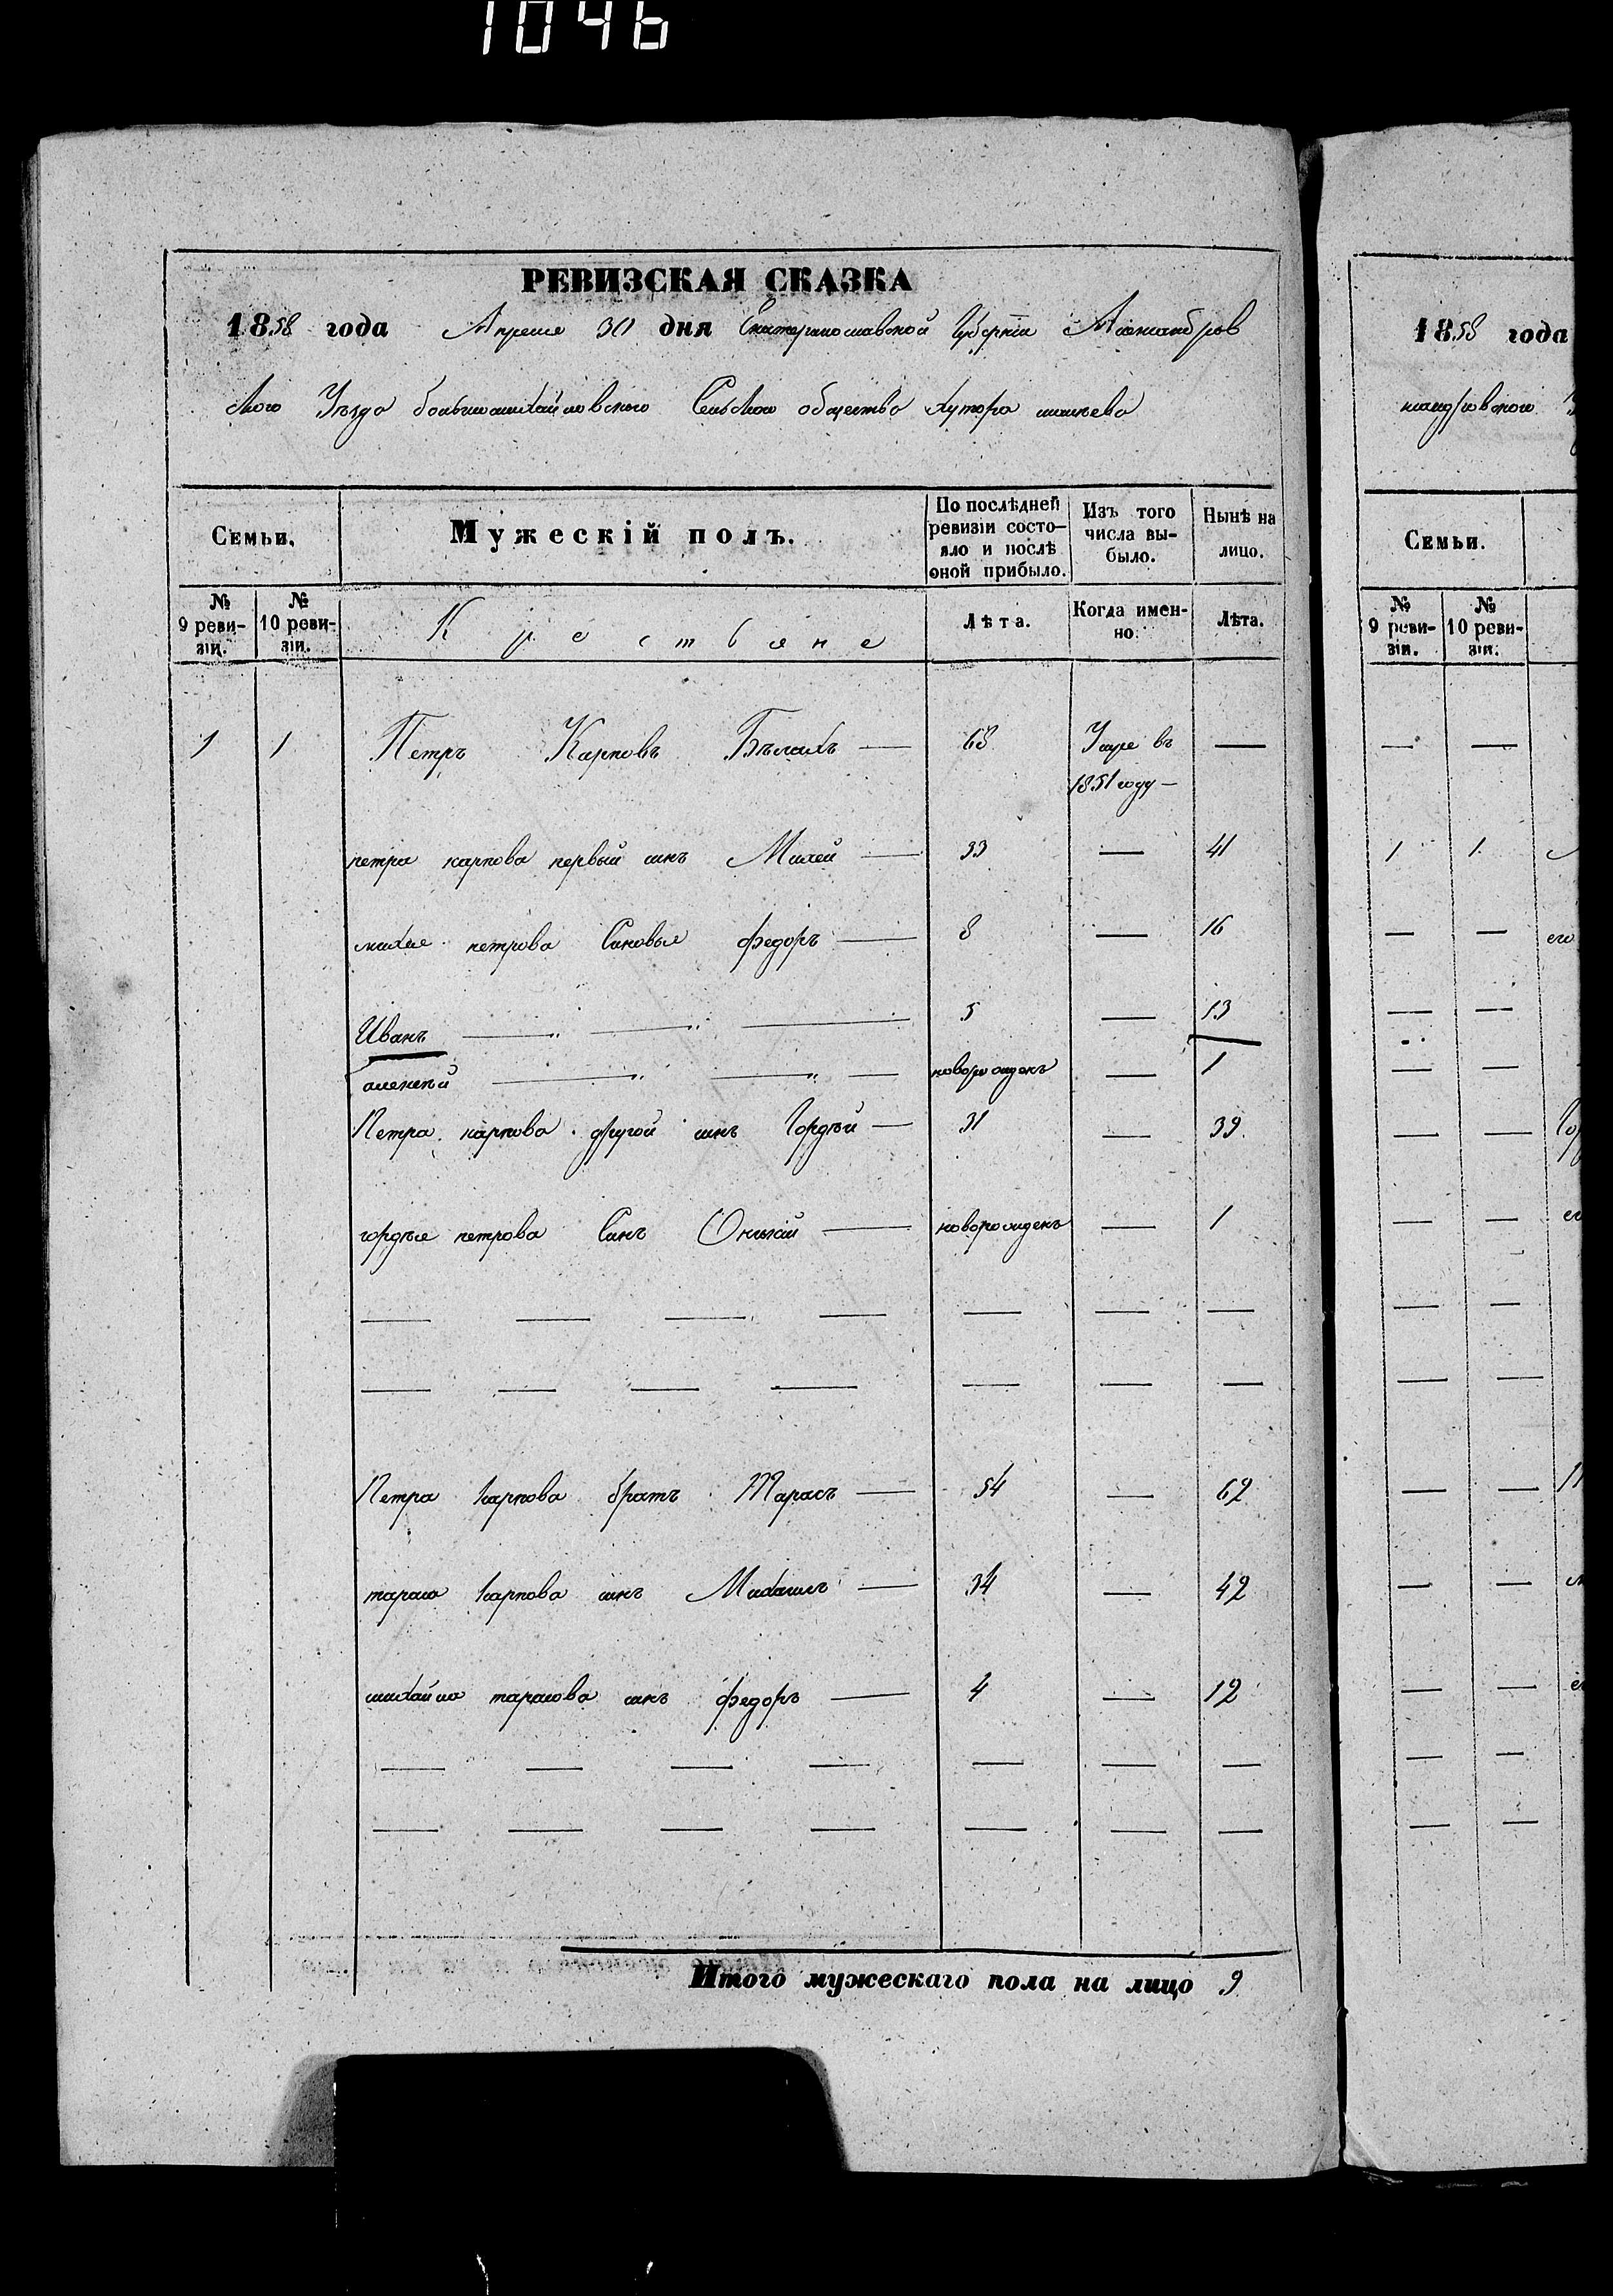 1046
РЕВИЗСКАЯ СКАЗКА
1858 года Апреля 30 дня Екатеринославской Губерніи Александров
ского Уезда большемихайловского Сельского общества хутора
Семьи. Мужескій полъ. По послѣдней ревизіи состояло и послѣ оной прибыло. Изъ того числа выбыло. Нынѣ на лицо.
№ 9 ревизіи. № 10 ревизіи. Крестьяне Лѣта. Когда именно. Лѣта.
1 1 Петръ Карповъ Бѣлашъ — 68 Умре въ —
1851 году —
петра карпова первый синъ Михей — 33 — 41
михея петрова Синовья федоръ — 8 — 16
Иванъ — " — " — 5 — 13
алексѣй — " — " — новорожденъ — 1
Петра карпова другой синъ Гордѣй — 31 — 39
гордѣя петрова Синъ — новорожденъ — 1
— — — — — — —
— — — — — — —
Петра карпова братъ Тарасъ — 54 — 62
тараса карпова синъ Михаилъ — 34 — 42
михайла тарасова синъ федоръ — 4 — 12
— — — — — — —
— — — — — — —
Итого мужескаго пола на лицо 9
1858 года
Семьи.
№ 9 ревизіи. № 10 ревизіи.
1 1
его